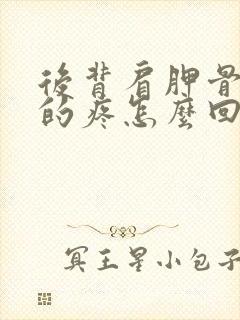 後背肩胛骨
的疼怎麼回
冥王星小包子